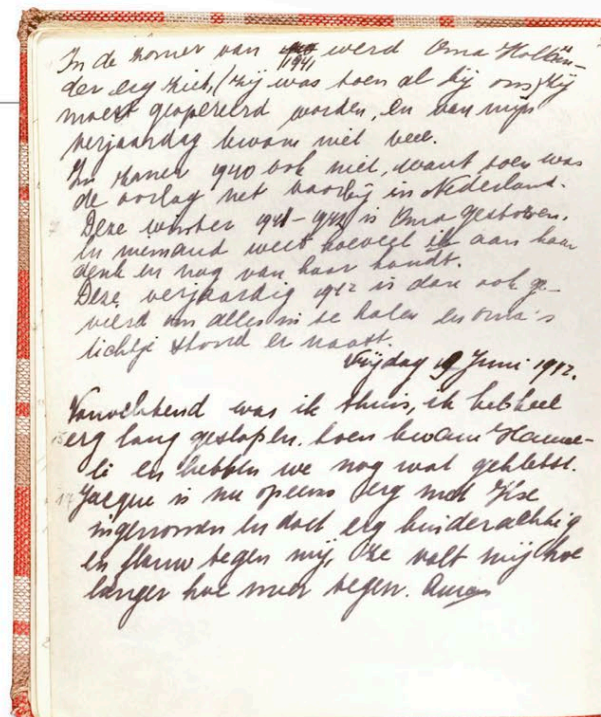 In de zomer van 1941 werd Oma Hollän-
der erg ziek, (zij was toen al bij ons) zij
moest geopereerd worden, en van mijn
verjaardag kwam niet veel.
In zomer 1940 ook niet, want toen was
de oorlog net voorbij in Nederland.
Deze winter 1941-1942 is Oma gestorven.
En niemand weet hoeveel ik aan haar
denk en nog van haar houdt.
Deze verjaardig 1942 is dan ook ge-
vierd om alles in te halen en oma's
lichtje stond er naast.
Vrijdag 19 Juni 1942.
Vanochtend was ik thuis, ik heb heel
erg lang geslapen, toen kwam Hanne-
li en hebben we nog wat gekletst.
Jacque is nu opeens erg met Ilse
ingenomen en doet erg kinderachtig
en flauw tegen mij, ze valt mij hoe
langer hoe meer tegen.